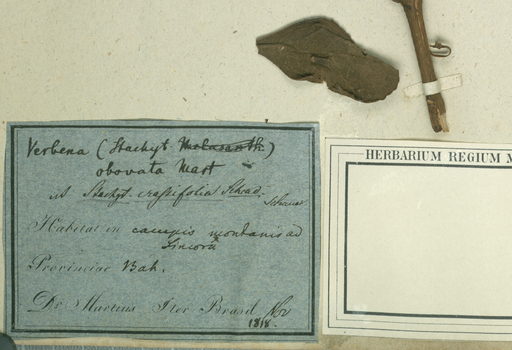 Verbena (Stachyt. Melasanth.)
obovata Mart
Stachyt. crassifolia Schrad.
Schauer
Habitat in campis montanis ad
Sincorá
Provinciae Bah.
Dr Martius Iter Brasil Nov
1818.
HERBARIUM REGIUM M